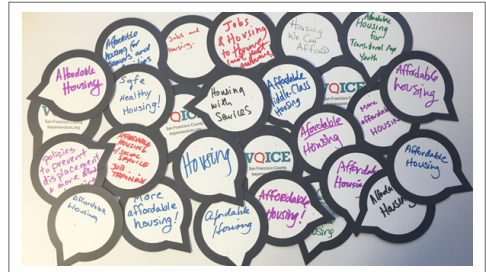 Affordable
housing for
Jobs and
Housing.
Jobs
& Housing
to
Housing
We Can
Afford
Affordable
Housing
for
Transitional Age
Youth
Affordable
Housing
Safe
Healthy
Housing!
Housing
with
Services
Affordable
Middle-Class
Housing
VOICE
San Francisco County
Affordable
housing.
VOICE
San Francisco County
More
affordable
HOUSING
Affordable
Housing
policies
to prevent
displacement
& more
AFFORDABLE
HOUSING
SOCIAL SERVICE
JOB TRAINING
Housing
VOICE
San Francisco County
Affordable
Housing
Affordable
Housing
Affordable
Housing
More
affordable
housing!
Affordable
Housing
Affordable
Housing!
Affordable
Housing